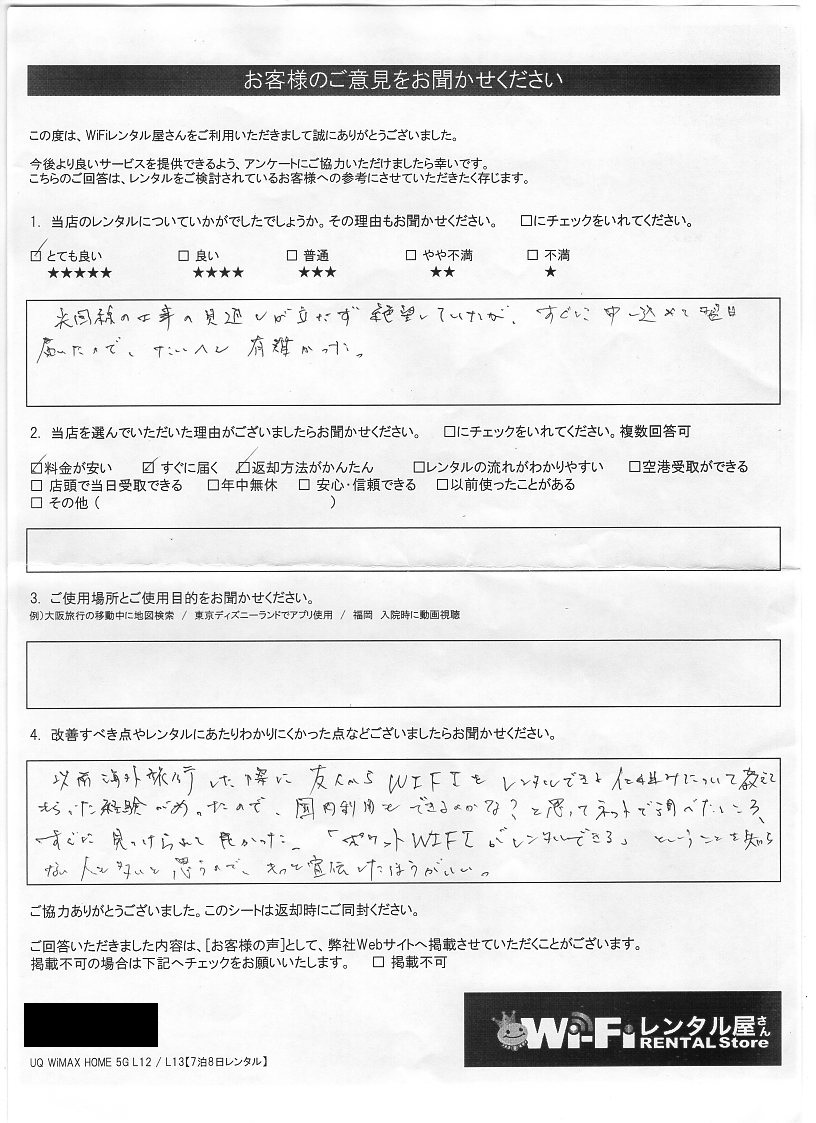 お客様のご意見をお聞かせください
この度は、WiFiレンタル屋さんをご利用いただきまして誠にありがとうございました。
今後より良いサービスを提供できるよう、アンケートにご協力いただけましたら幸いです。
こちらのご回答は、レンタルをご検討されているお客様への参考にさせていただきたく存じます。
1. 当店のレンタルについていかがでしたでしょうか。その理由もお聞かせください。 □にチェックをいれてください。
☑ とても良い □ 良い □ 普通 □ やや不満 □ 不満
★★★★★ ★★★★ ★★★ ★★ ★
光回線の工事の見通しが立たず絶望していたが、すぐに申し込めて翌日
届いたので、たいへん有難かった。
2. 当店を選んでいただいた理由がございましたらお聞かせください。 □にチェックをいれてください。複数回答可
☑料金が安い ☑ すぐに届く ☑返却方法がかんたん □レンタルの流れがわかりやすい □空港受取ができる
□ 店頭で当日受取できる □年中無休 □ 安心・信頼できる □以前使ったことがある
□ その他 ( )
3. ご使用場所とご使用目的をお聞かせください。
例)大阪旅行の移動中に地図検索 / 東京ディズニーランドでアプリ使用 / 福岡 入院時に動画視聴
4. 改善すべき点やレンタルにあたりわかりにくかった点などございましたらお聞かせください。
以前海外旅行した際に友人からWIFIをレンタルできる仕組みについて教えて
もらった経験があったので、国内利用もできるのかな?と思ってネットで調べたところ、
すぐに見つけられて良かった。「ポケットWIFIがレンタルできる」ということを知ら
ない人も多いと思うので、もっと宣伝したほうがいい。
ご協力ありがとうございました。このシートは返却時にご同封ください。
ご回答いただきました内容は、[お客様の声]として、弊社Webサイトへ掲載させていただくことがございます。
掲載不可の場合は下記へチェックをお願いいたします。 □ 掲載不可
Wi-Fi レンタル屋さん
RENTAL Store
UQ WiMAX HOME 5G L12 / L13【7泊8日レンタル】